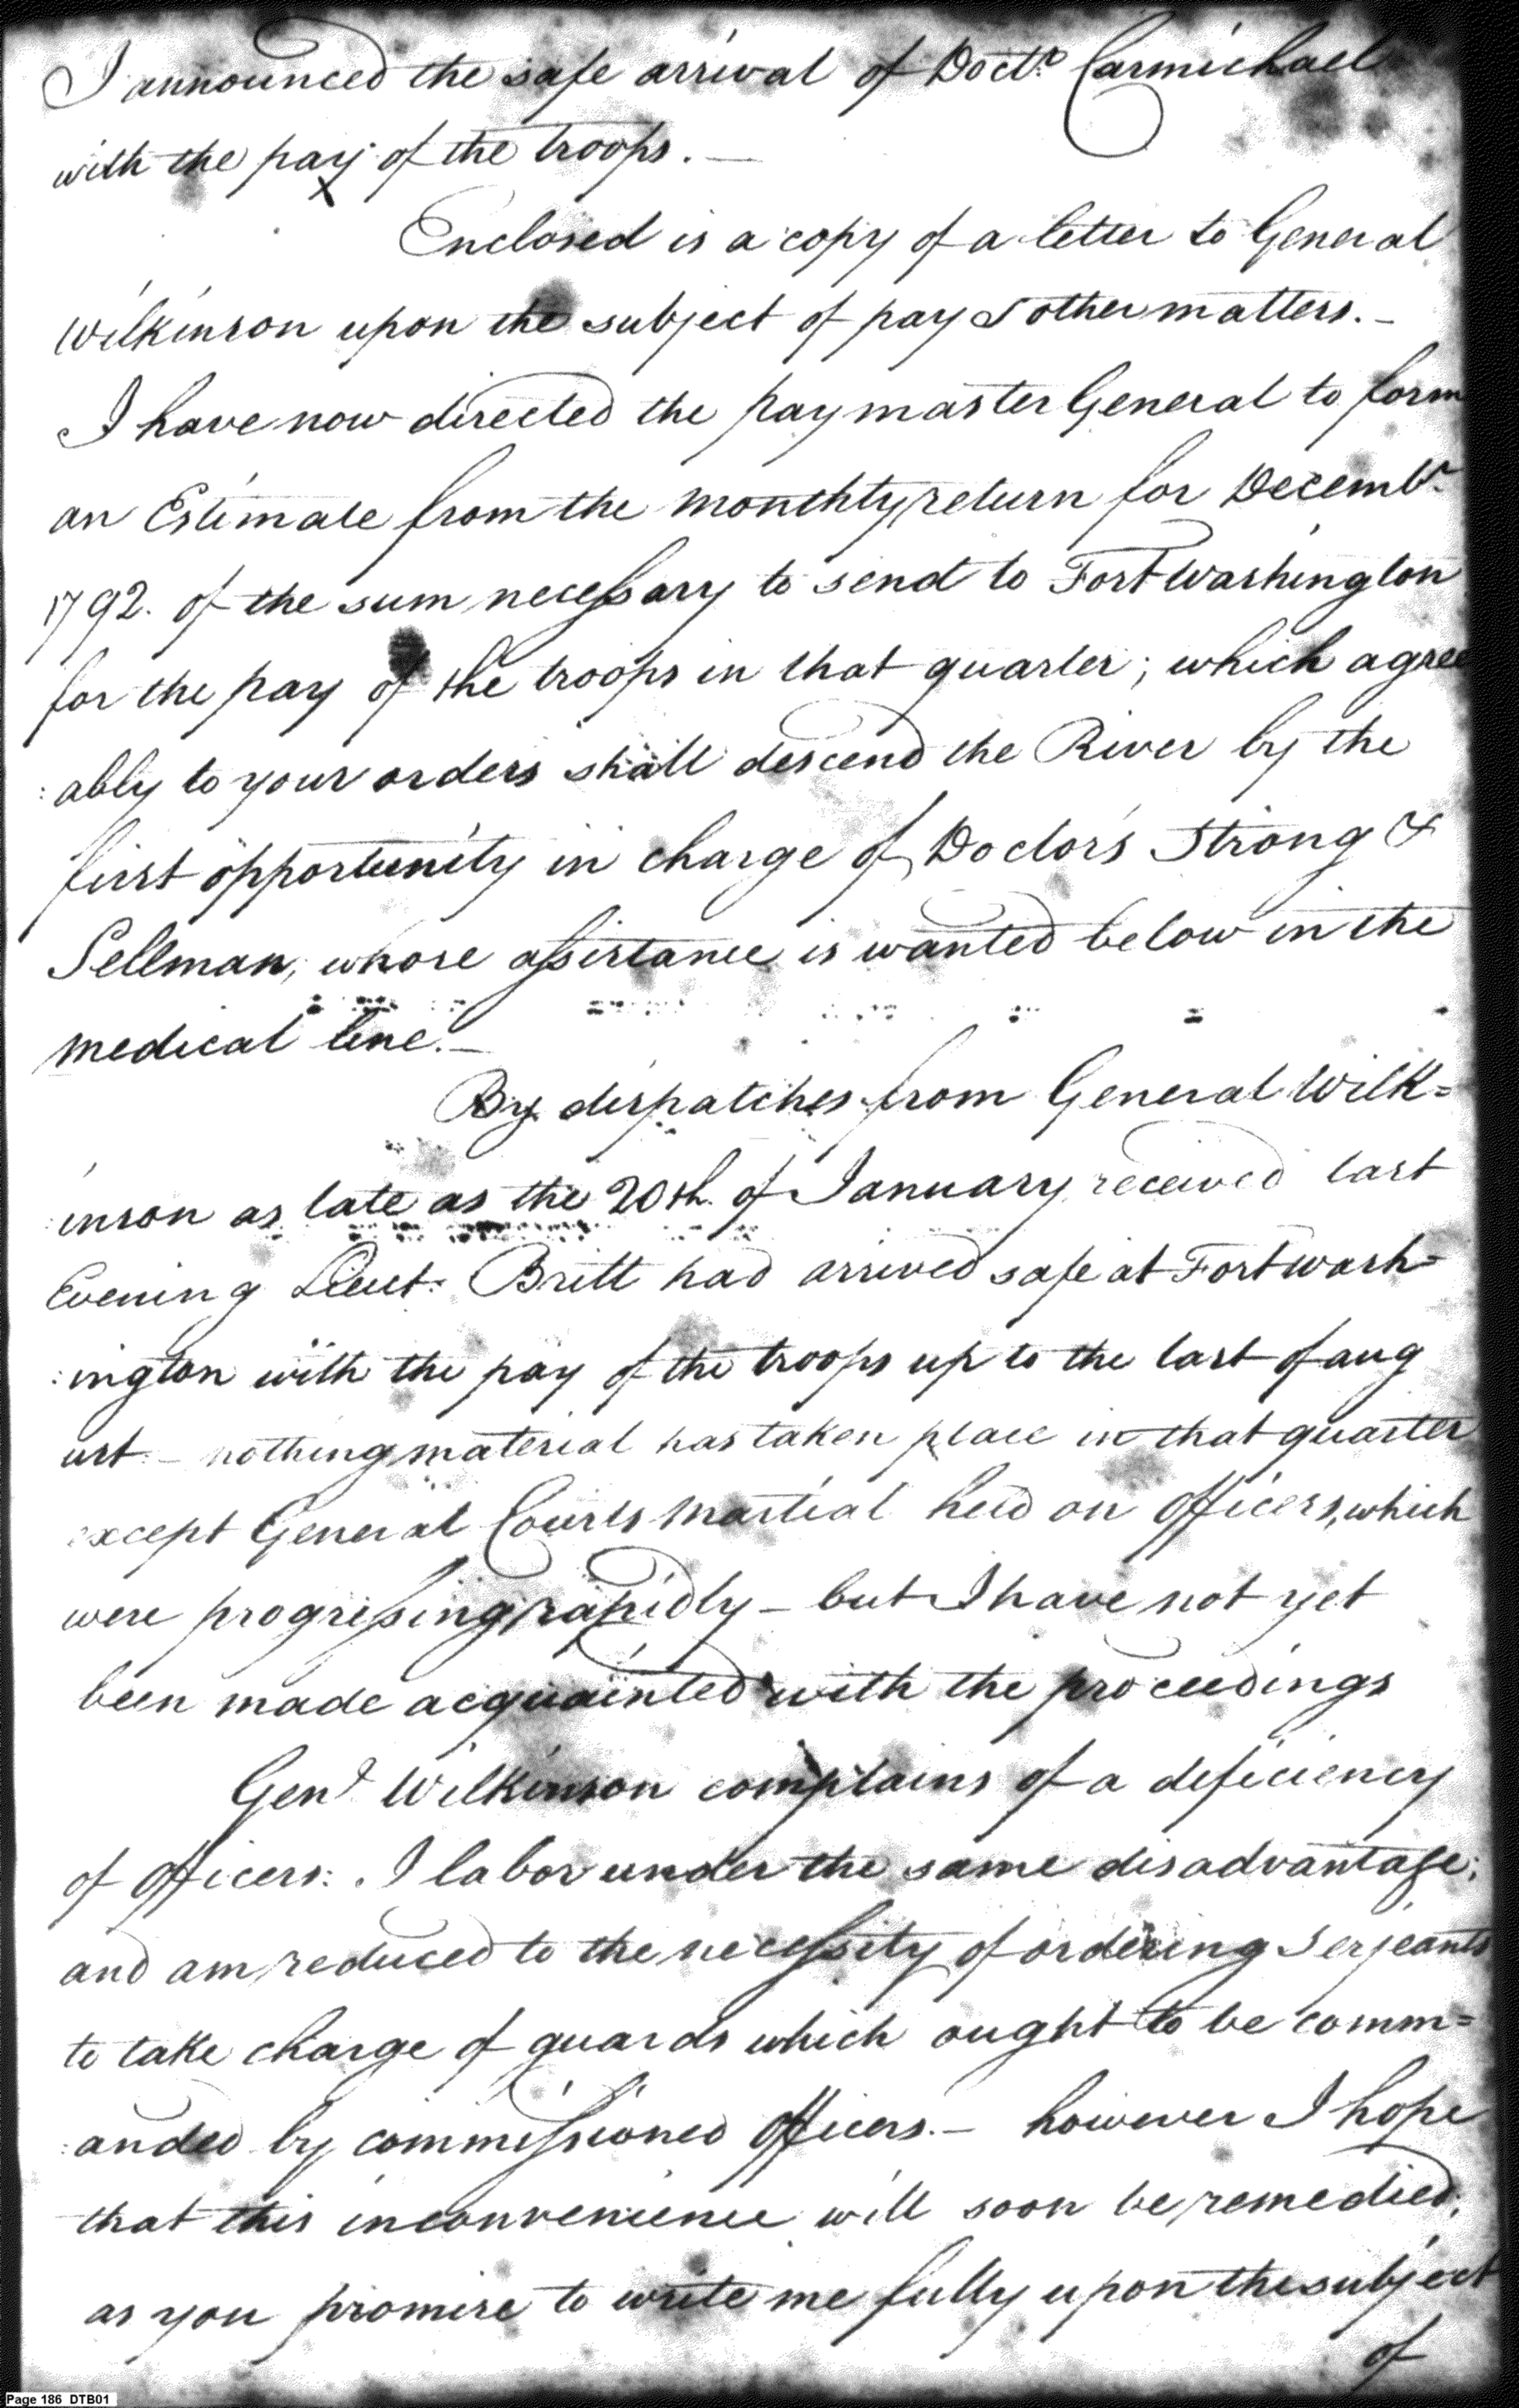 I announced the safe arrival of Doctr. Carmichael
with the pay of the troops. —
Enclosed is a copy of a letter to General
Wilkinson upon the subject of pay & other matters. –
I have now directed the paymaster General to form
an Estimate from the monthly return for Decembr.
1792. of the sum necessary to send to Fort Washington
for the pay of the troops in that quarter; which agree
:ably to your orders shall descend the River by the
first opportunity in charge of Doctors Strong &
Sellman, whose assistance is wanted below in the
medical line. –
By dispatches from General Wilk=
inson as late as the 20th. of January received last
Evening Lieut: Britt had arrived safe at Fort Wash=
:ington with the pay of the troops up to the last of aug
ust – nothing material has taken place in that quarter
except General Courts Martial held on Officers, which
were progressing rapidly – but I have not yet
been made acquainted with the proceedings
Genl Wilkinson complains of a deficiency
of Officers: I labor under the same disadvantage;
and am reduced to the necessity of ordering Serjeants
to take charge of guards which ought to be comm=
:anded by commissioned Officers. – however I hope
that this inconvenience will soon be remedied,
as you promise to write me fully upon the subject
of
Page 186 DTB01